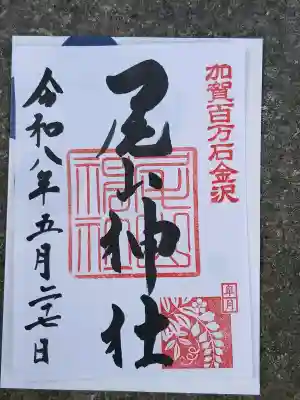 加賀百万石金沢
尾山神社
令和八年五月二十七日
皐月